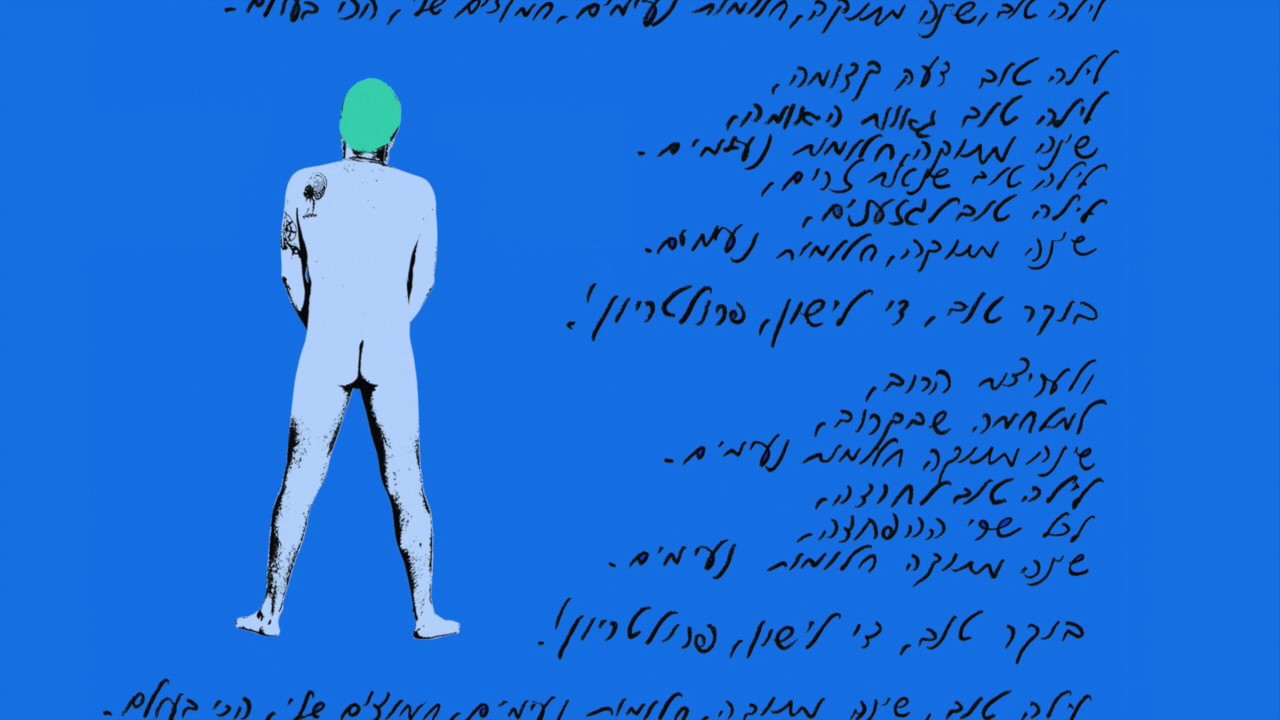 לילה טוב, שינה מתוקה, חלומות נעימים, חמודים שלי, הכי בעולם.
לילה טוב דעה קדומה,
לילה טוב גאוות האומה,
שינה מתוקה, חלומות נעימים.
לילה טוב שנאת זרים,
לילה טוב לגזענים,
שינה מתוקה, חלומות נעימים.
בוקר טוב, די לישון, פרולטריון!
ולעריצות הרוב,
למלחמה שבקרוב,
שינה מתוקה חלומות נעימים.
לילה טוב לחרדה,
לכל שרי ההפחדה,
שינה מתוקה חלומות נעימים.
בוקר טוב, די לישון, פרולטריון!
לילה טוב, שינה מתוקה, חלומות נעימים, חמודים שלי, הכי בעולם.